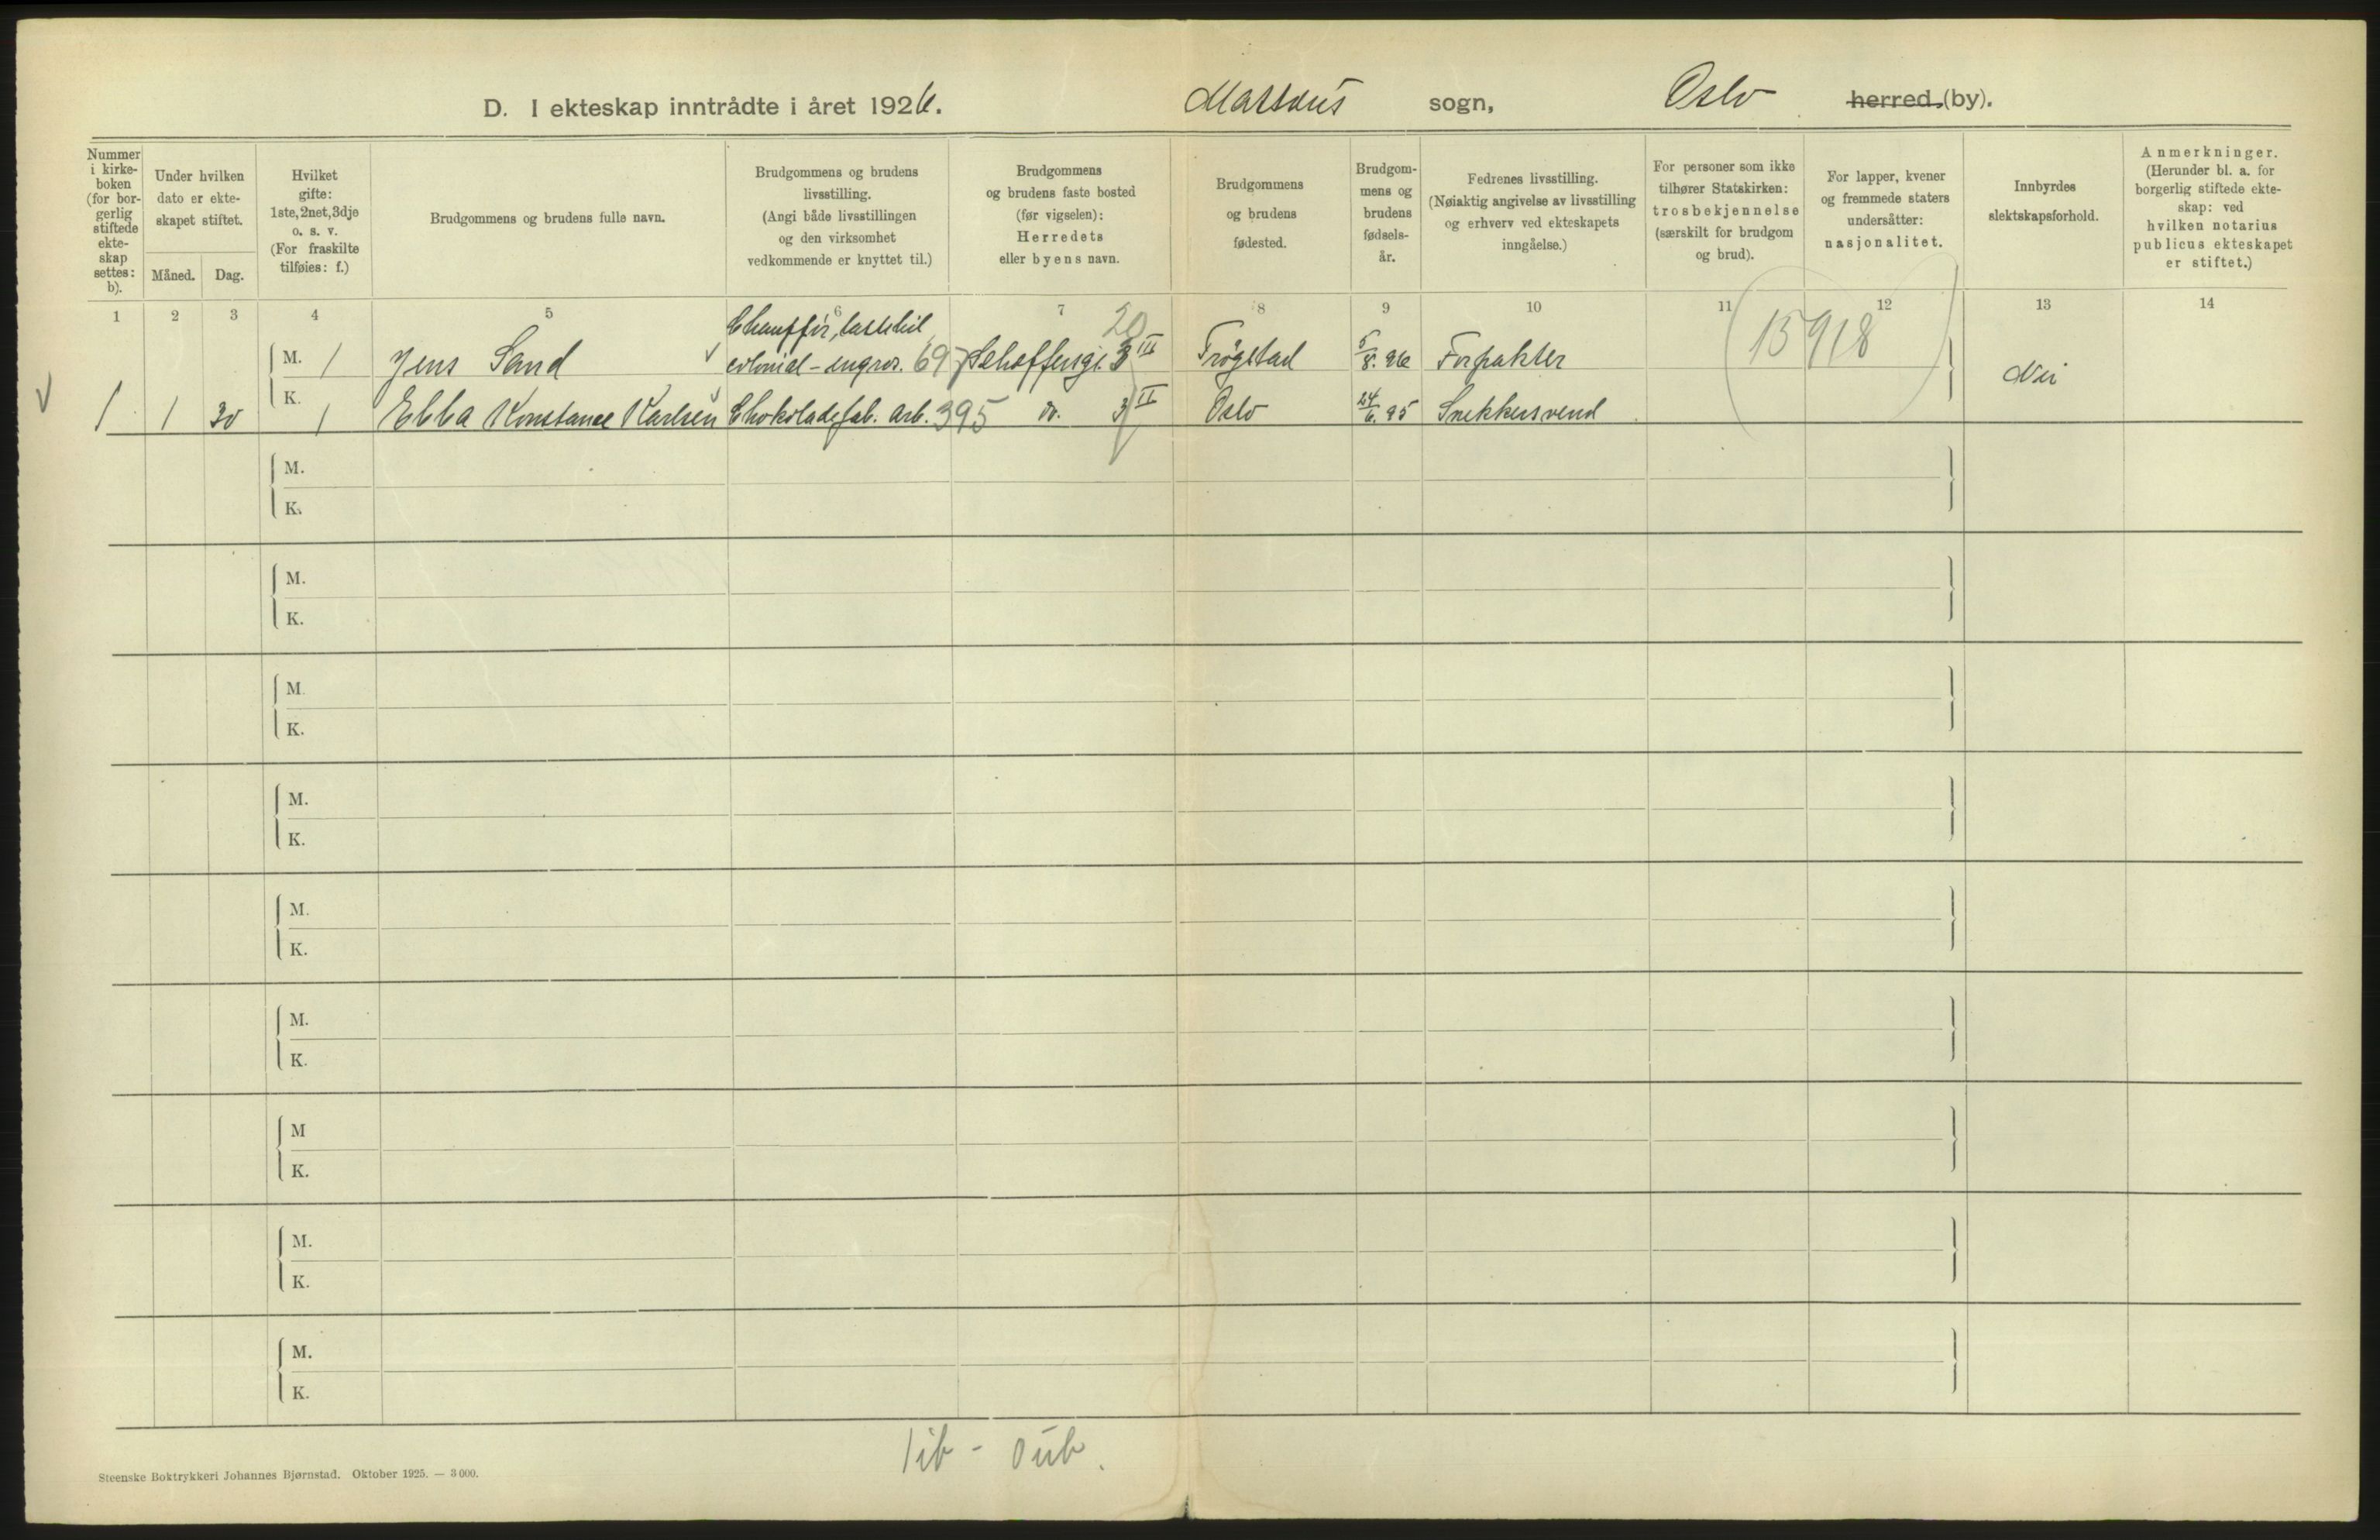 D. I ekteskap inntrådte i året 1926. Matteus sogn, Oslo herred (by).
Nummer i kirke-boken (for bor-gerlig stiftede ekte-skap settes: b).
Under hvilken dato er ekte-skapet stiftet.
Måned. Dag.
Hvilket gifte: 1ste, 2net, 3dje o. s. v. (For fraskilte tilføies: f.)
Brudgommens og brudens fulle navn.
Brudgommens og brudens livsstilling. (Angi både livsstillingen og den virksomhet vedkommende er knyttet til.)
Brudgommens og brudens faste bosted (før vigselen): Herredets eller byens navn.
Brudgommens og brudens fødested.
Brudgom-mens og brudens fødsels-år.
Fedrenes livsstilling. (Nøiaktig angivelse av livsstilling og erhverv ved ekteskapets inngåelse.)
For personer som ikke tilhører Statskirken: trosbekjennelse (særskilt for brudgom og brud).
For lapper, kvener og fremmede staters undersåtter: nasjonalitet.
Innbyrdes slektskapsforhold.
Anmerkninger. (Herunder bl. a. for borgerlig stiftede ekte-skap: ved hvilken notarius publicus ekteskapet er stiftet.)
1 2 3 4 5 6 7 8 9 10 11 12 13 14
Chauffør, lastebil 20
M. 1 Jens Sand colonial-engros. 697 Schaffersgt. 3 III Trøgstad 5/8. 96 Forpakter 15918 Nei
1 1 30 K. 1 Ebba Konstance Karlsen Chokoladefab. arb. 395 do. 3 II Oslo 24/6. 95 Snekkersvend
M.
K.
M.
K.
M.
K.
M.
K.
M.
K.
M.
K.
M
K.
M.
K.
M.
K.
Steenske Boktrykkeri Johannes Bjørnstad. Oktober 1925. — 3 000.